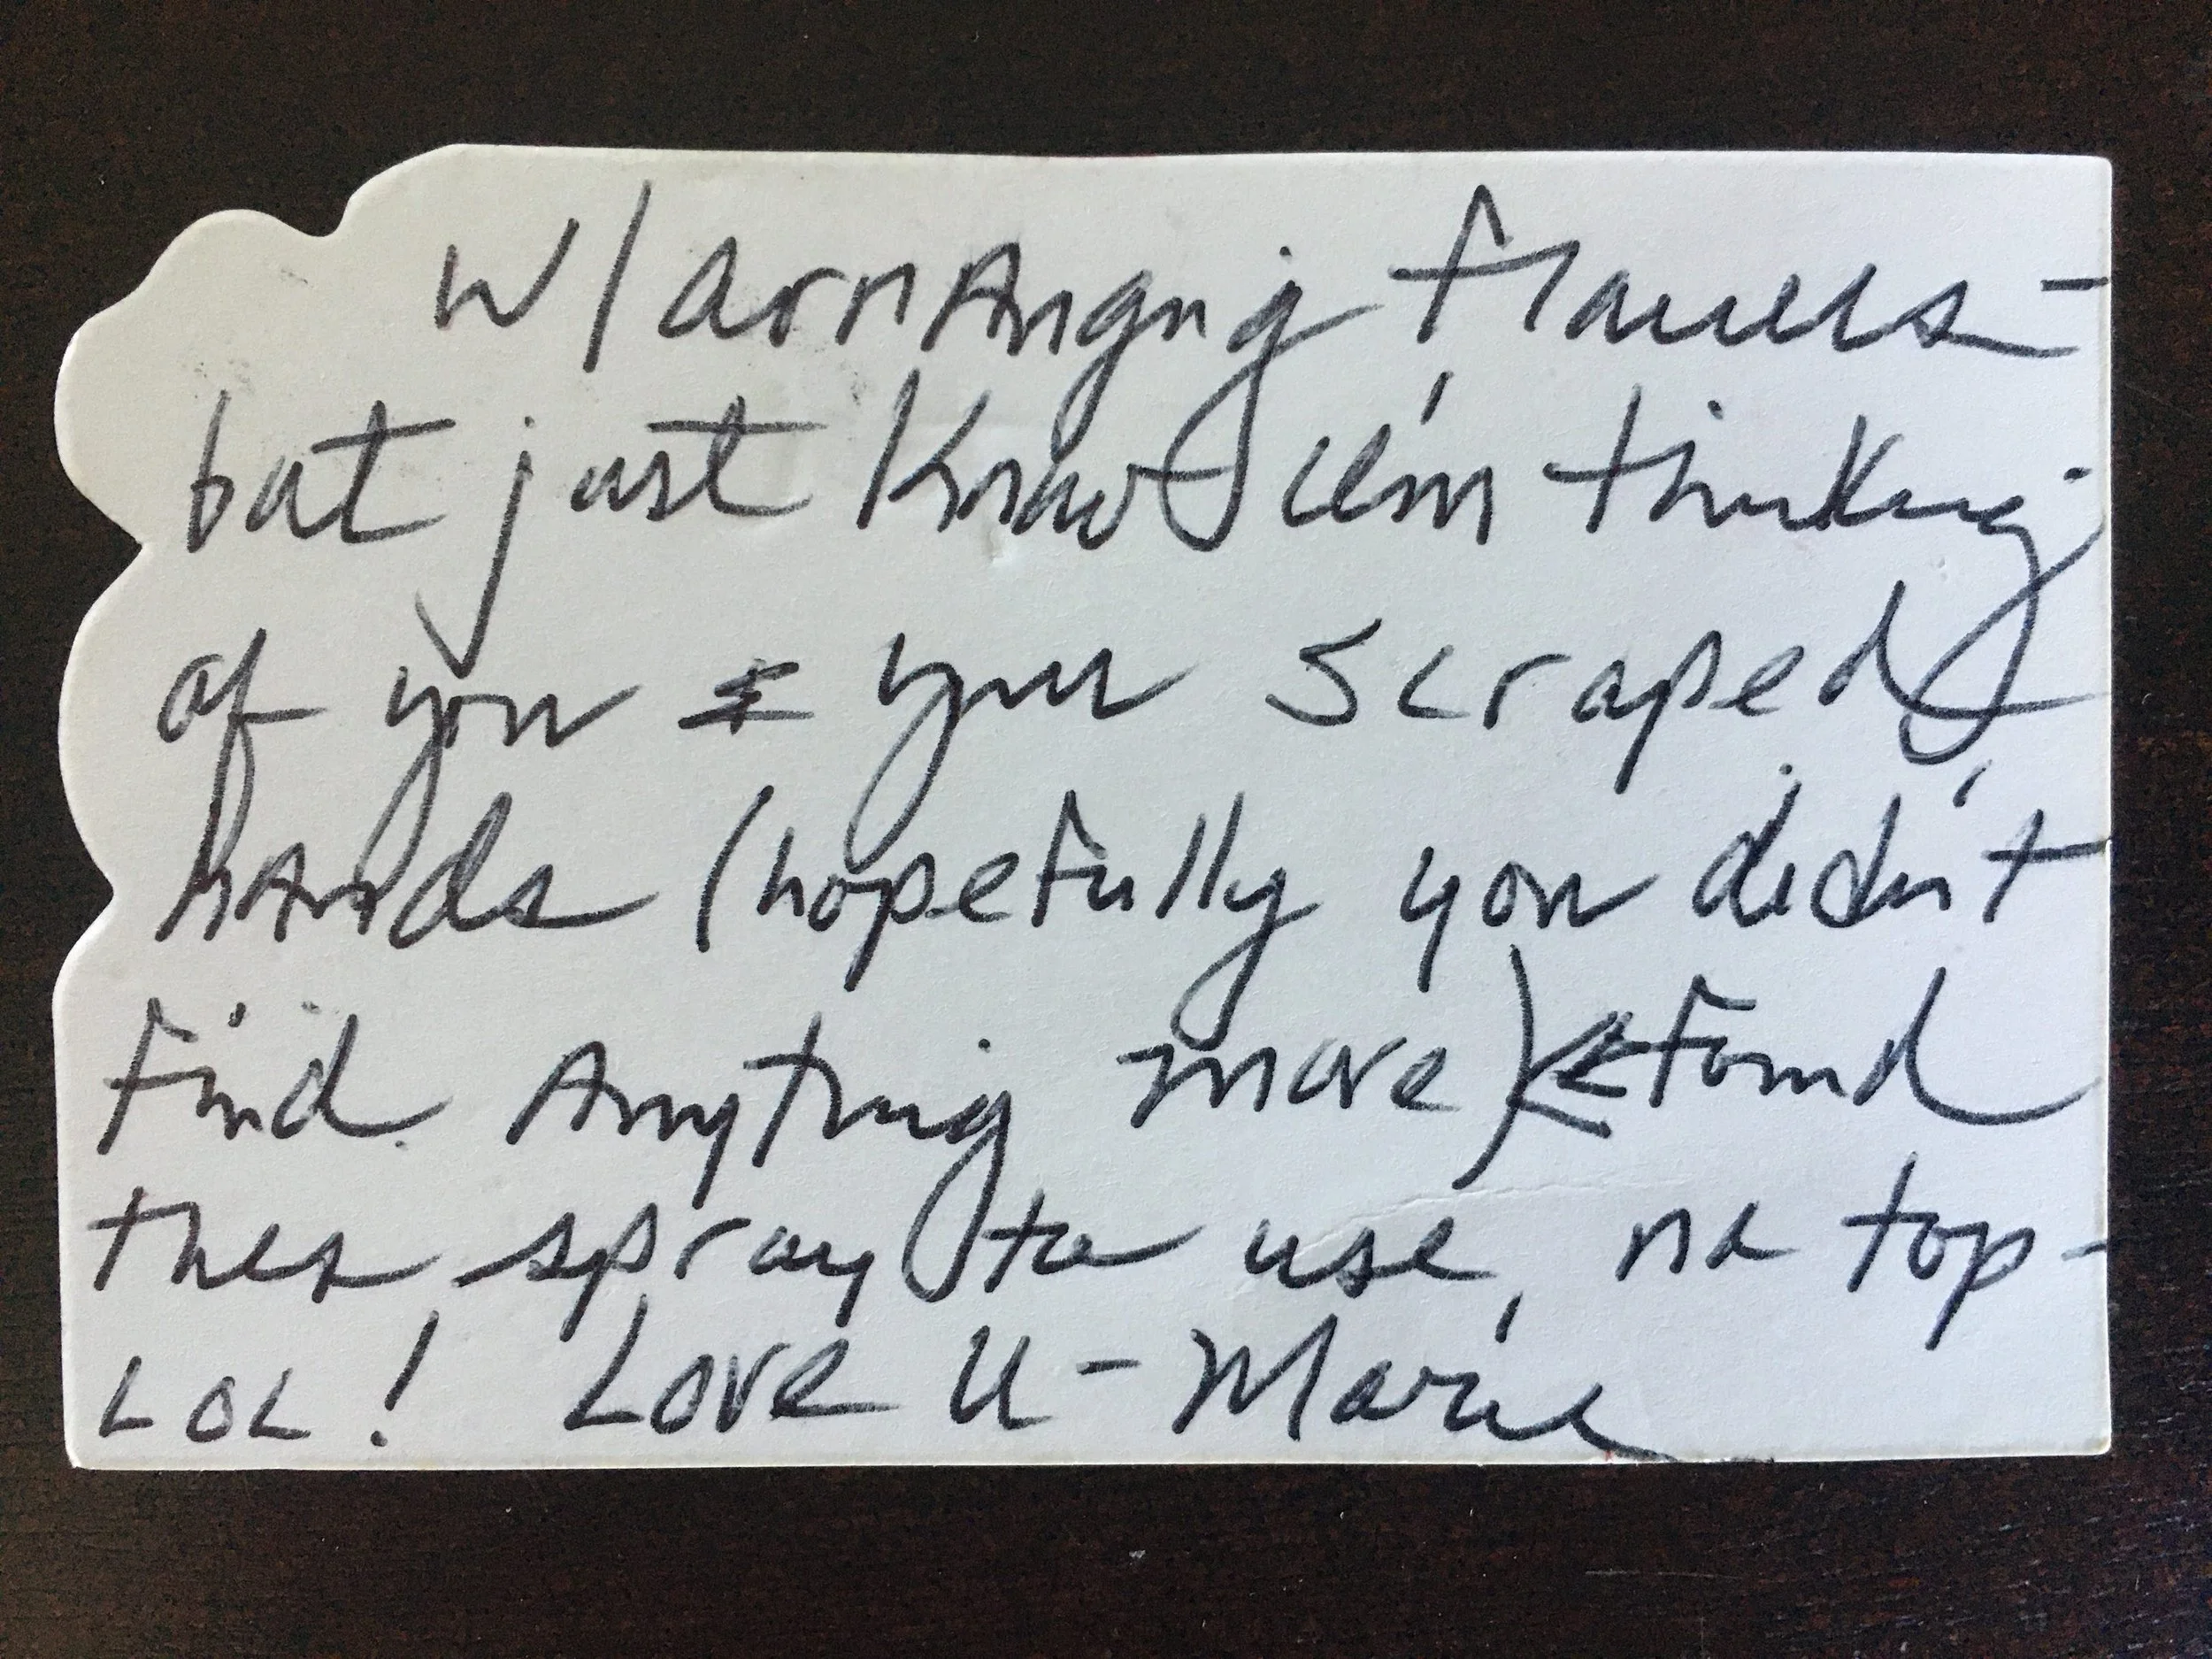 w/ arrAnging flowers-
but just know I'm thinking
of you & your scraped
hands (hopefully you didn't
find Anything more) & found
this spray to use, no top-
LOL! Love U - Marie